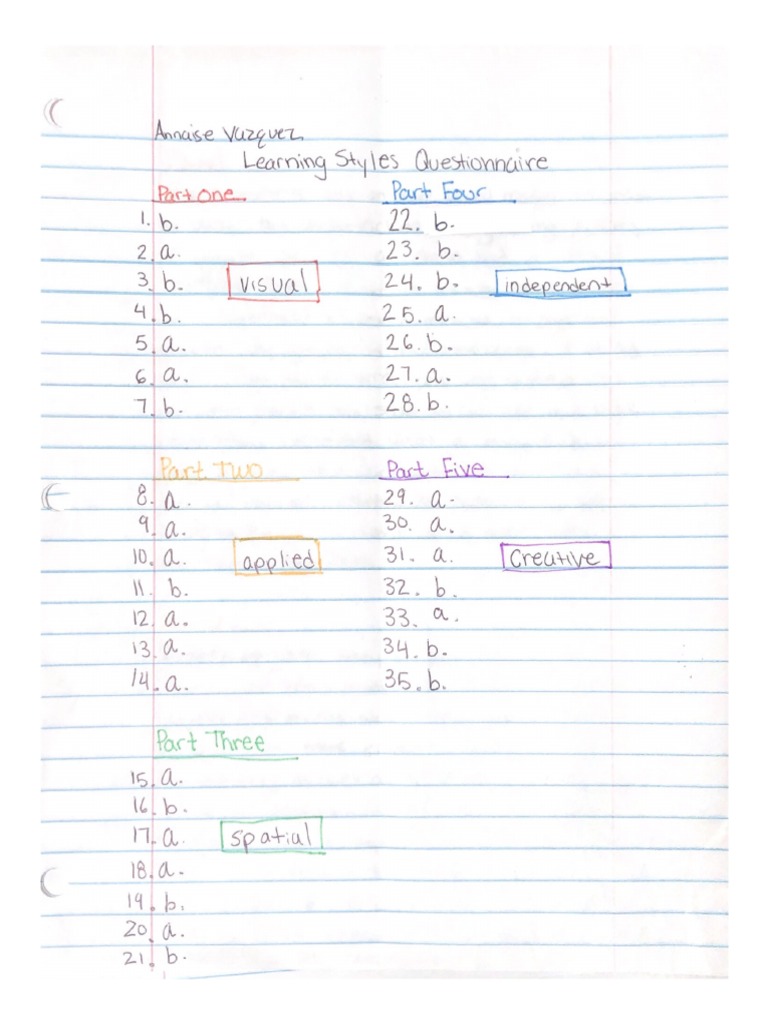 Annaise Vazquez
Learning Styles Questionnaire
Part One
1. b.
2. a.
3. b.
visual
4. b.
5. a.
6. a.
7. b.
Part Two
8. a.
9. a.
10. a.
applied
11. b.
12. a.
13. a.
14. a.
Part Three
15. a.
16. b.
17. a.
spatial
18. a.
19. b.
20. a.
21. b.
Part Four
22. b.
23. b.
24. b.
independent
25. a.
26. b.
27. a.
28. b.
Part Five
29. a.
30. a.
31. a.
Creative
32. b.
33. a.
34. b.
35. b.